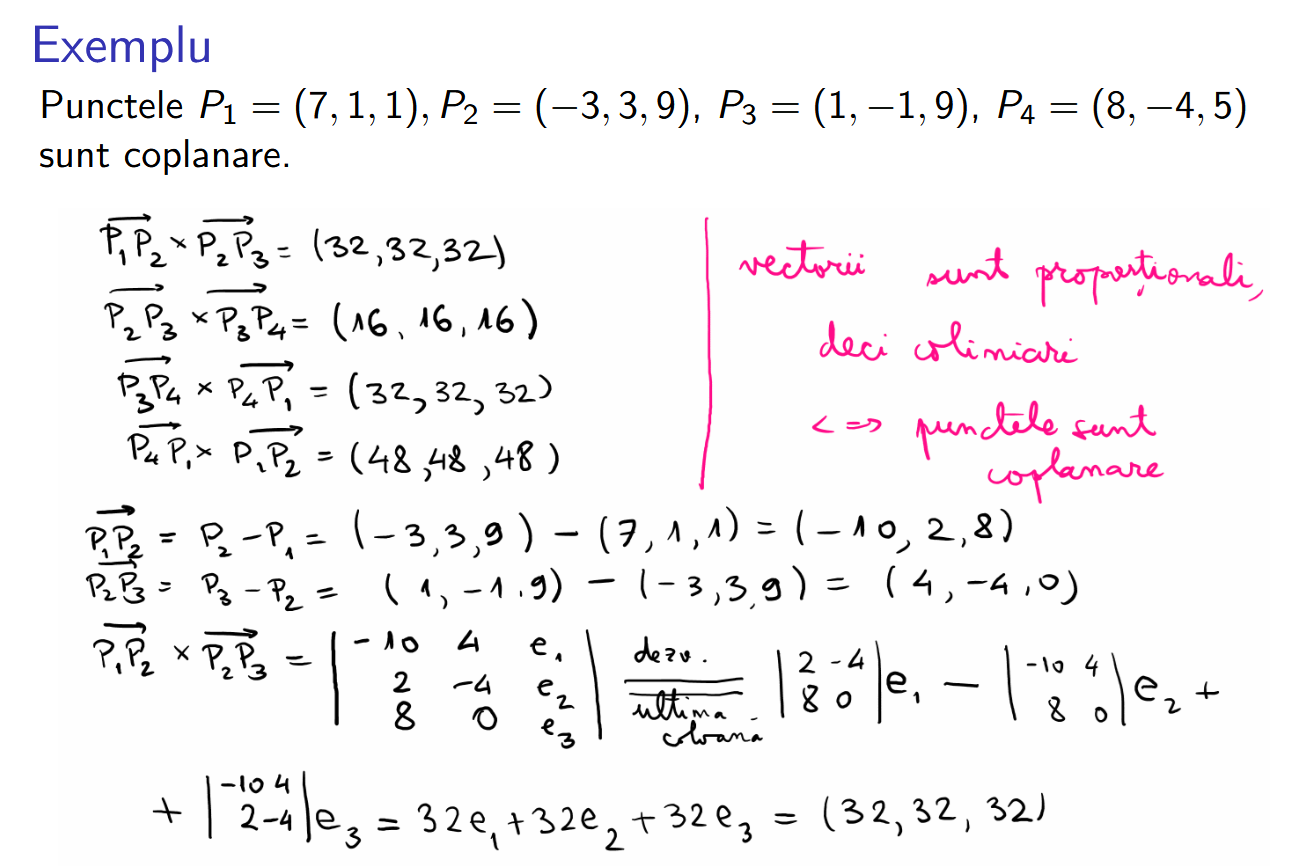 Exemplu
Punctele P₁ = (7, 1, 1), P₂ = (−3, 3, 9), P₃ = (1, −1, 9), P₄ = (8, −4, 5)
sunt coplanare.
P₁P₂ × P₂P₃ = (32, 32, 32)
P₂P₃ × P₃P₄ = (16, 16, 16)
P₃P₄ × P₄P₁ = (32, 32, 32)
P₄P₁ × P₁P₂ = (48, 48, 48)
vectorii sunt proporționali,
deci coliniari
<=> punctele sunt
coplanare
P₁P₂ = P₂ − P₁ = (−3, 3, 9) − (7, 1, 1) = (−10, 2, 8)
P₂P₃ = P₃ − P₂ = (1, −1, 9) − (−3, 3, 9) = (4, −4, 0)
P₁P₂ × P₂P₃ = | −10 4 e₁ | dezv. | 2 −4 | e₁ − | −10 4 | e₂ +
| 2 −4 e₂ | ultima | 8 0 | | 8 0 |
| 8 0 e₃ | coloană
+ | −10 4 | e₃ = 32e₁ + 32e₂ + 32e₃ = (32, 32, 32)
| 2 −4 |